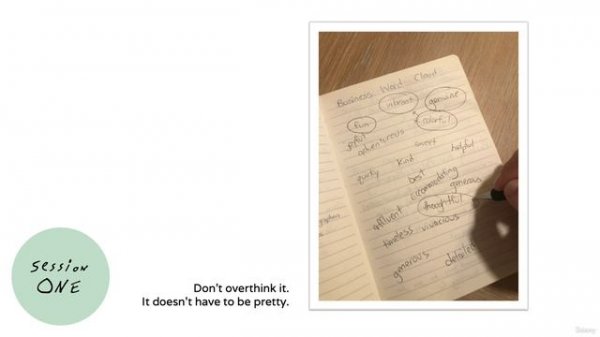 Business Word Cloud
vibrant genuine
fun colorful
joyful
adventurous
sweet helpful
quirky kind
best
accomodating
generous
affluent thoughtful
timeless vivacious
generous detailed
session
ONE
Don't overthink it.
It doesn't have to be pretty.